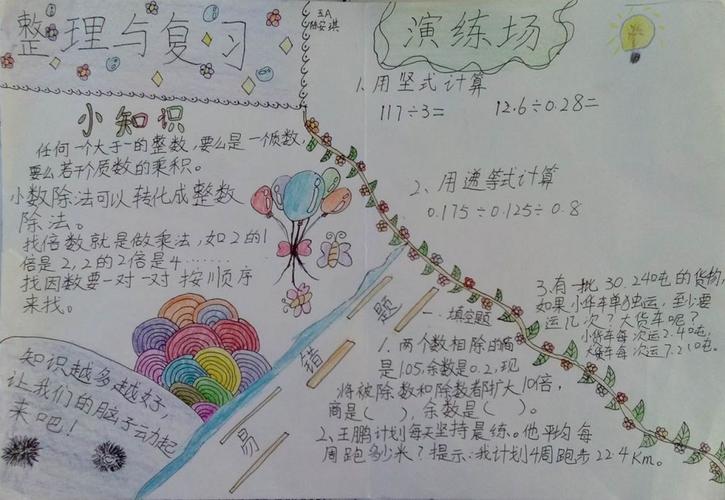 整理与复习
五A
陈安琪
小知识
任何一个大于一的整数,要么是一个质数,
要么若干个质数的乘积。
小数除法可以转化成整数
除法。
找倍数就是做乘法,如2的1
倍是2,2的2倍是4……
找因数要一对一对按顺序
来找。
知识越多越好,
让我们的脑子动起
来吧!
演练场
1、用竖式计算
117÷3= 12.6÷0.28=
2、用递等式计算
0.175÷0.125÷0.8
3.有一批30.240屯的货物,
如果小货车单独运,至少要
运几次?大货车呢?
小货车每次运2.40屯,
大货车每次运7.210屯。
易错题
一、填空题
1、两个数相除的商
是1.05,余数是0.2,现
将被除数和除数都扩大10倍,
商是( ),余数是( )。
2、王鹏计划每天坚持晨练。他平均每
周跑多少米?提示:我计划4周跑步22.4Km。